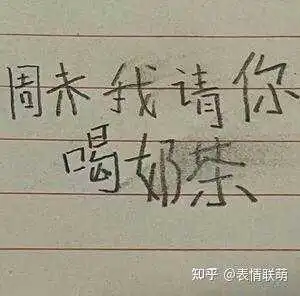 周末我请你
喝奶茶
知乎 @表情联萌